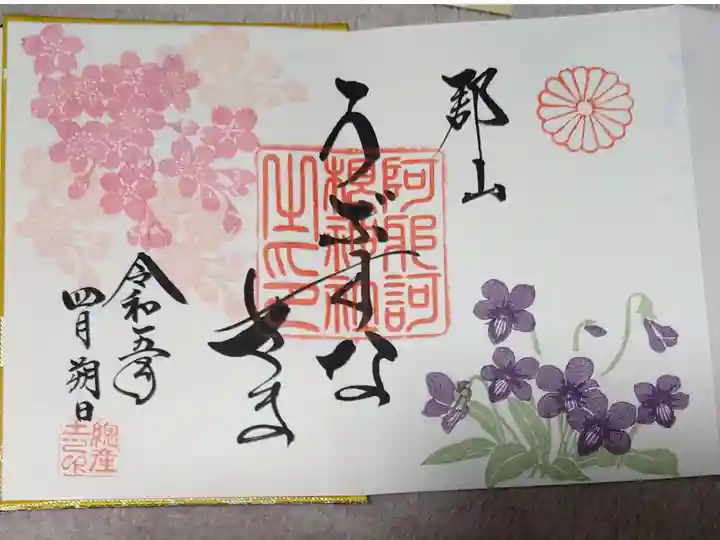 郡山
うぶすな
さま
阿邪訶
根神社
之印
令和五年
四月朔日
総産
土印